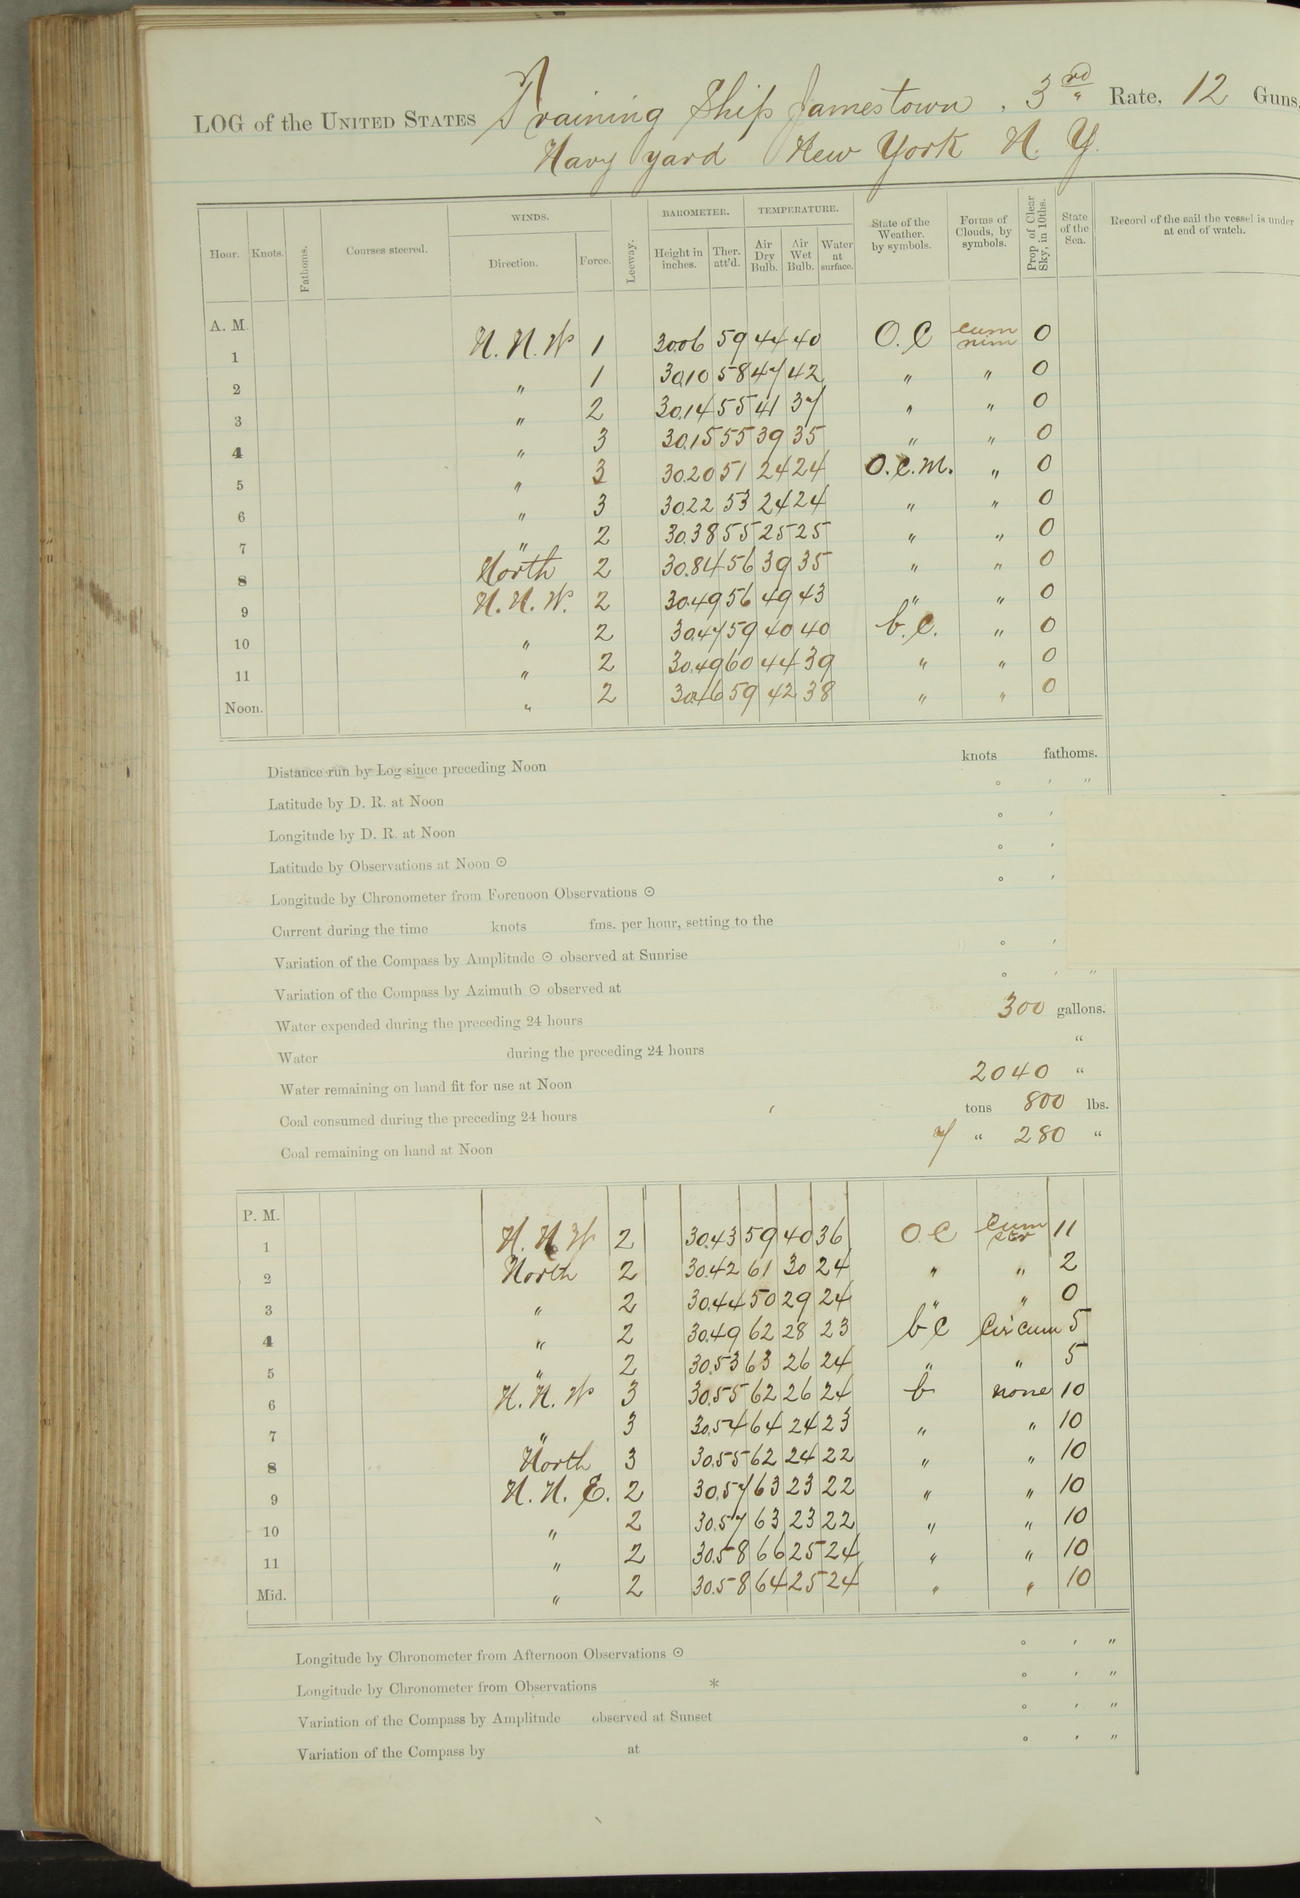 LOG of the UNITED STATES Training Ship Jamestown, 3rd Rate, 12 Guns,
Navy yard New York N. Y.
Hour. Knots. Fathoms. Courses steered. WINDS. Direction. Force. Leeway. BAROMETER. Height in inches. Ther. att'd. TEMPERATURE. Air Dry Bulb. Air Wet Bulb. Water at surface. State of the Weather, by symbols. Forms of Clouds, by symbols. Prop of Clear Sky, in 10ths. State of the Sea. Record of the sail the vessel is under at end of watch.
A. M.
1 N. N. W 1 30.06 59 44 40 O. C cum nim 0
2 " 1 30.10 58 47 42 " " 0
3 " 2 30.14 55 41 37 " " 0
4 " 3 30.15 55 39 35 " " 0
5 " 3 30.20 51 24 24 O. C. M. " 0
6 " 3 30.22 53 24 24 " " 0
7 " 2 30.38 55 25 25 " " 0
8 North 2 30.84 56 39 35 " " 0
9 N. N. W. 2 30.49 56 49 43 " " 0
10 " 2 30.47 59 40 40 b. C. " 0
11 " 2 30.49 60 44 39 " " 0
Noon. " 2 30.46 59 42 38 " " 0
Distance run by Log since preceding Noon knots fathoms.
Latitude by D. R. at Noon ° ' "
Longitude by D. R. at Noon ° '
Latitude by Observations at Noon ☉ ° '
Longitude by Chronometer from Forenoon Observations ☉ ° '
Current during the time knots fms. per hour, setting to the
Variation of the Compass by Amplitude ☉ observed at Sunrise ° '
Variation of the Compass by Azimuth ☉ observed at ° ' "
Water expended during the preceding 24 hours 300 gallons.
Water during the preceding 24 hours "
Water remaining on hand fit for use at Noon 2040 "
Coal consumed during the preceding 24 hours tons 800 lbs.
Coal remaining on hand at Noon 7 " 280 "
P. M.
1 N. N W 2 30.43 59 40 36 O C Cum str 11
2 North 2 30.42 61 30 24 " " 2
3 " 2 30.44 50 29 24 " " 0
4 " 2 30.49 62 28 23 b C Cir cum 5
5 " 2 30.53 63 26 24 " " 5
6 N. N. W 3 30.55 62 26 24 b none 10
7 " 3 30.54 64 24 23 " " 10
8 North 3 30.55 62 24 22 " " 10
9 N. N. E. 2 30.57 63 23 22 " " 10
10 " 2 30.57 63 23 22 " " 10
11 " 2 30.58 66 25 24 " " 10
Mid. " 2 30.58 64 25 24 " " 10
Longitude by Chronometer from Afternoon Observations ☉ ° ' "
Longitude by Chronometer from Observations * ° ' "
Variation of the Compass by Amplitude observed at Sunset ° ' "
Variation of the Compass by at ° ' "